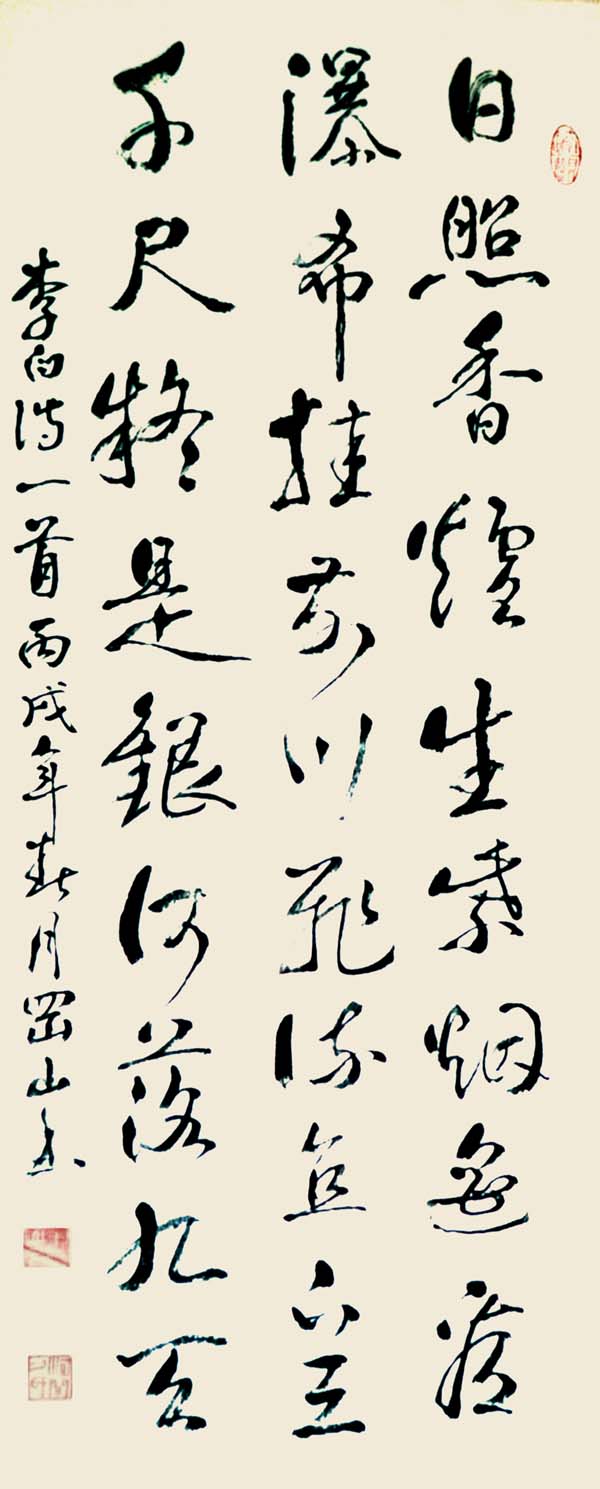 日照香爐生紫烟遥看
瀑希挂前川飛流直下三
千尺疑是銀河落九天
李白詩一首丙戌年春月山書